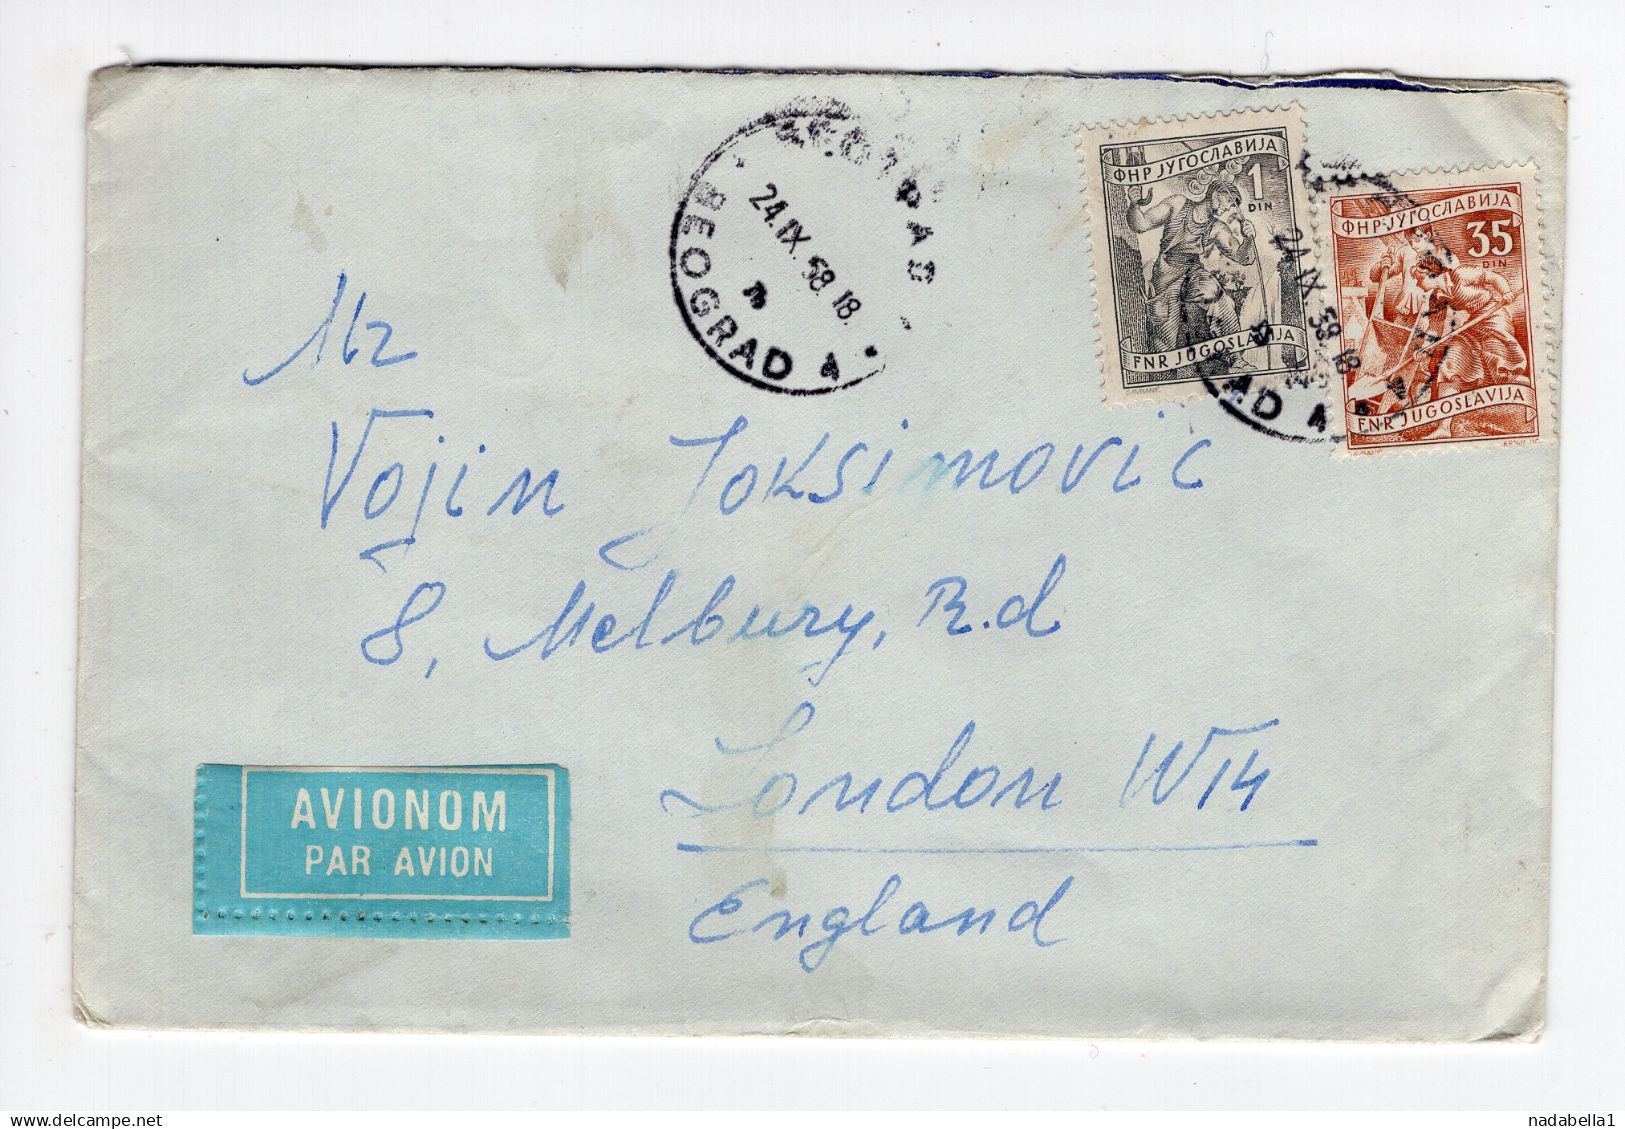 БЕОГРАД
24.IX.58.18.
BEOGRAD 4
ФНР ЈУГОСЛАВИЈА
1
DIN
FNR JUGOSLAVIJA
ФНР ЈУГОСЛАВИЈА
35
DIN
FNR JUGOSLAVIJA
24.IX.58.18
AD 4
Mr
Vojin Joksimovic
8, Melbury, R.d
London W14
England
AVIONOM
PAR AVION
nadabella1